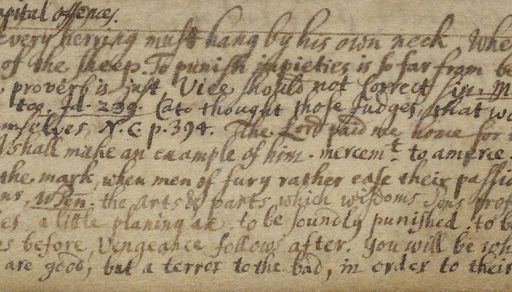 apital offences.
every herring must hang by his own neck Whe
of the sheep. To punish impieties is so far from be
proverb is just Vice should not Correct in. M
tog. Id. 239. Cato thought those Judges, that wo
mselves, N. C p. 394. The Lord paid me home for
shall make an example of him. mercemt to amerce.
the mark, when men of fury rather ease their passio
ns, Pen. the arts & parts which wisdoms Sons prof
a little planing ax to be soundly punished to be
s before, Vengeance follows after, You will be whi
are good, but a terror to the bad, in order to their